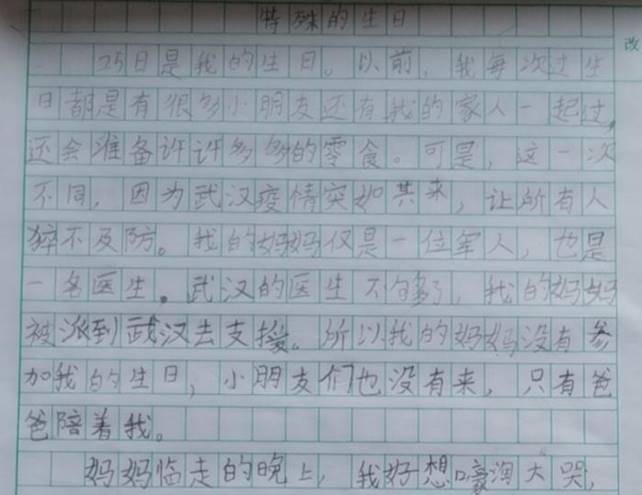 特殊的生日
25日是我的生日。以前，我每次过生
日都是有很多小朋友还有我的家人一起过，
还会准备许许多多的零食。可是，这一次
不同，因为武汉疫情突如其来，让所有人
猝不及防。我的妈妈仅是一位军人，也是
一名医生。武汉的医生不够多，我的妈妈
被派到武汉去支援。所以我的妈妈没有参
加我的生日，小朋友们也没有来，只有爸
爸陪着我。
妈妈临走的晚上，我好想嚎淘大哭，
改